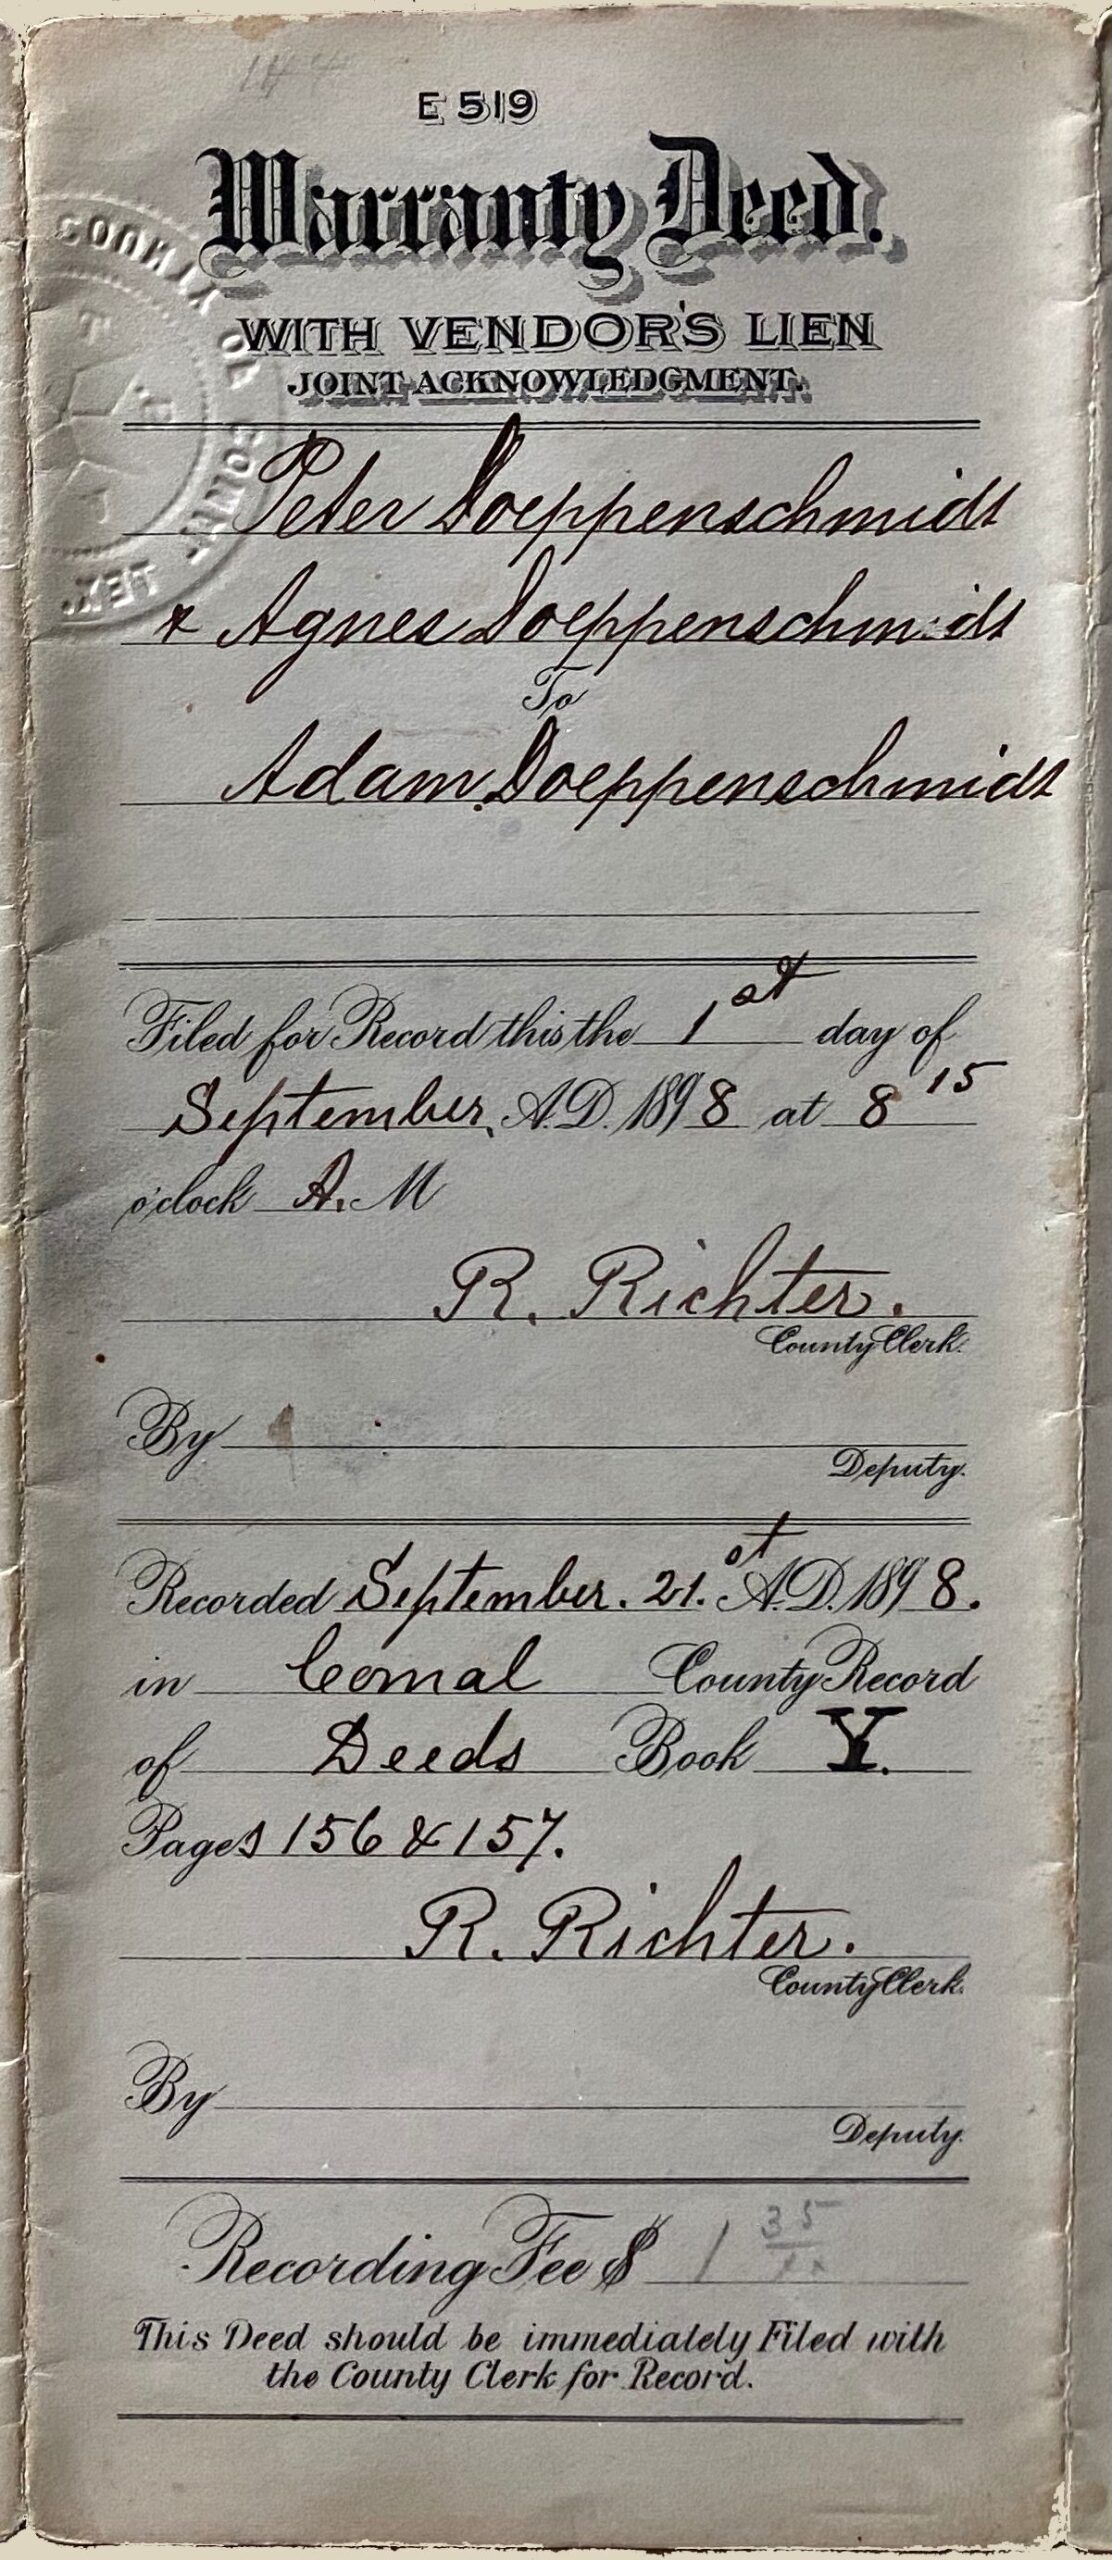 E 519
Warranty Deed.
WITH VENDOR'S LIEN
JOINT ACKNOWLEDGMENT.
COUNTY
TEX.
Peter Doeppenschmidt
& Agnes Doeppenschmidt
To
Adam Doeppenschmidt
Filed for Record this the 1st day of
September, A.D. 1898 at 8 15
o'clock A. M
R. Richter.
County Clerk.
By
Deputy.
Recorded September. 21.st A.D. 1898.
in Comal County Record
of Deeds Book Y.
Pages 156 & 157.
R. Richter.
County Clerk.
By
Deputy.
Recording Fee $ 1 35
This Deed should be immediately Filed with
the County Clerk for Record.